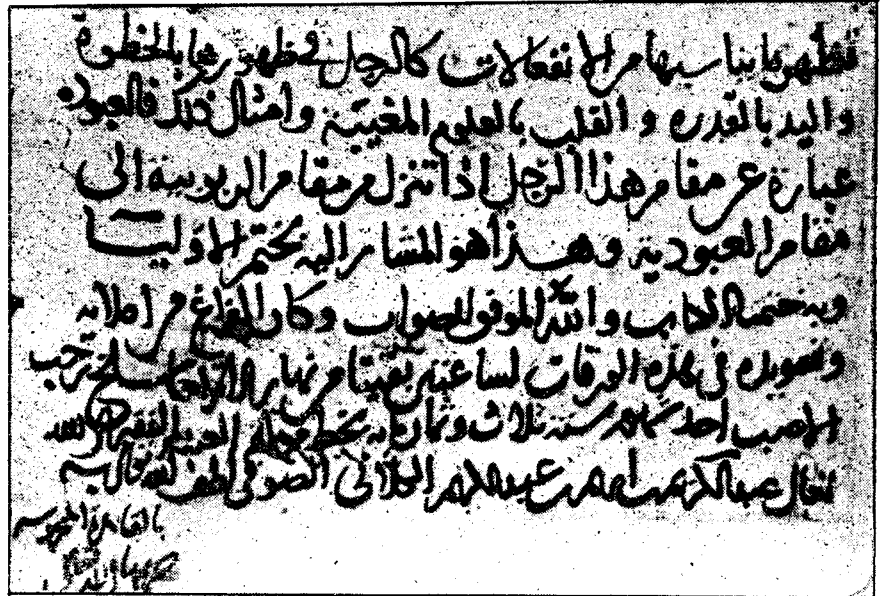 فتظهر بما يناسبها من الانفعالات كالرجل في ظهورها بالخطوة
واليد بالقدرة والقلب بالعلوم المغيبة وامثال ذلك فالعبودة
عبارة عن مقام هذا الرجل اذا تنزل من مقام الربوبية الى
مقام العبودية وهذا هو المشار اليه بختم الاوليا
وبه ختمنا الكتاب والله الموفق للصواب وكان الفراغ من املائه
وتسويده في هذه الورقات لساعتين بقيتا من نهار الاربعا سلخ رجب
الاصب احد شهور سنة ثلاث وثمانمايه بخط مملية العبد الفقير الى الله
تعالى عبد الكريم بن ابراهيم بن عبد الكريم الكيلاني الصوفي لطف الله به
بالقاهرة المحروسة